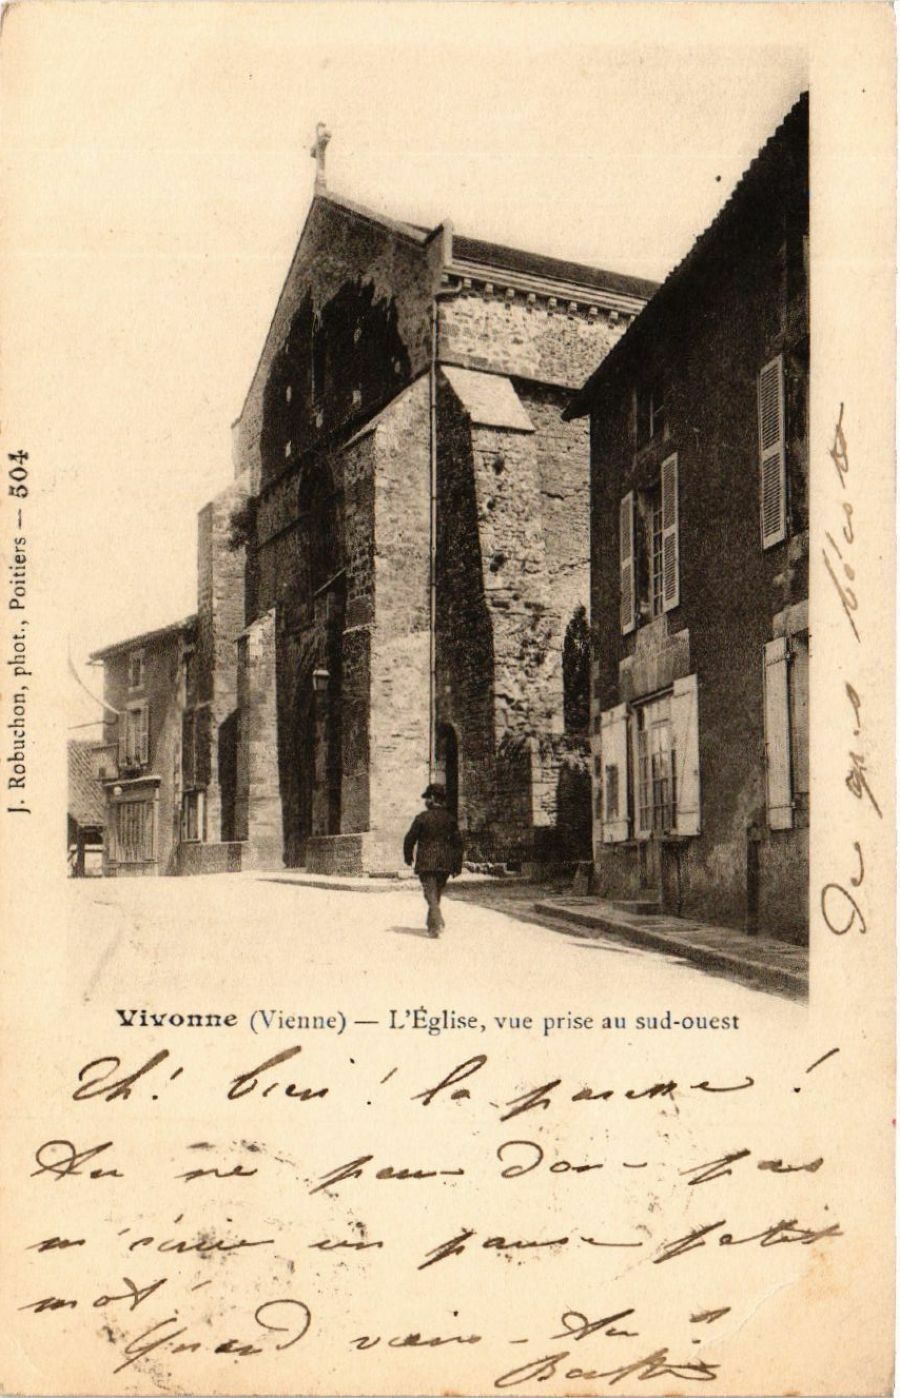 J. Robuchon, phot., Poitiers — 504
Vivonne (Vienne) — L'Église, vue prise au sud-ouest
Eh! bien! la
tu ne peu don pas
m'écrire un pauvre petit
mot!
Quand viens-tu?
De